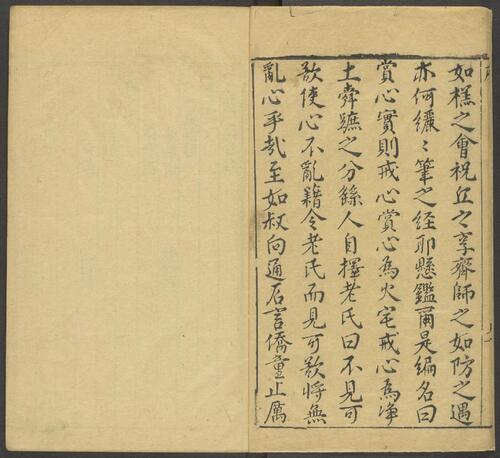 如禚之會祝丘之享齊師之如防之遇
亦何纚〻筆之経耶懸鑑爾是編名曰
賞心實則戒心賞心為火宅戒心為淨
土舜蹠之分繇人自擇老氏曰不見可
欲使心不亂籍令老氏而見可欲將無
亂心乎哉至如叔向通石言僑童止厲